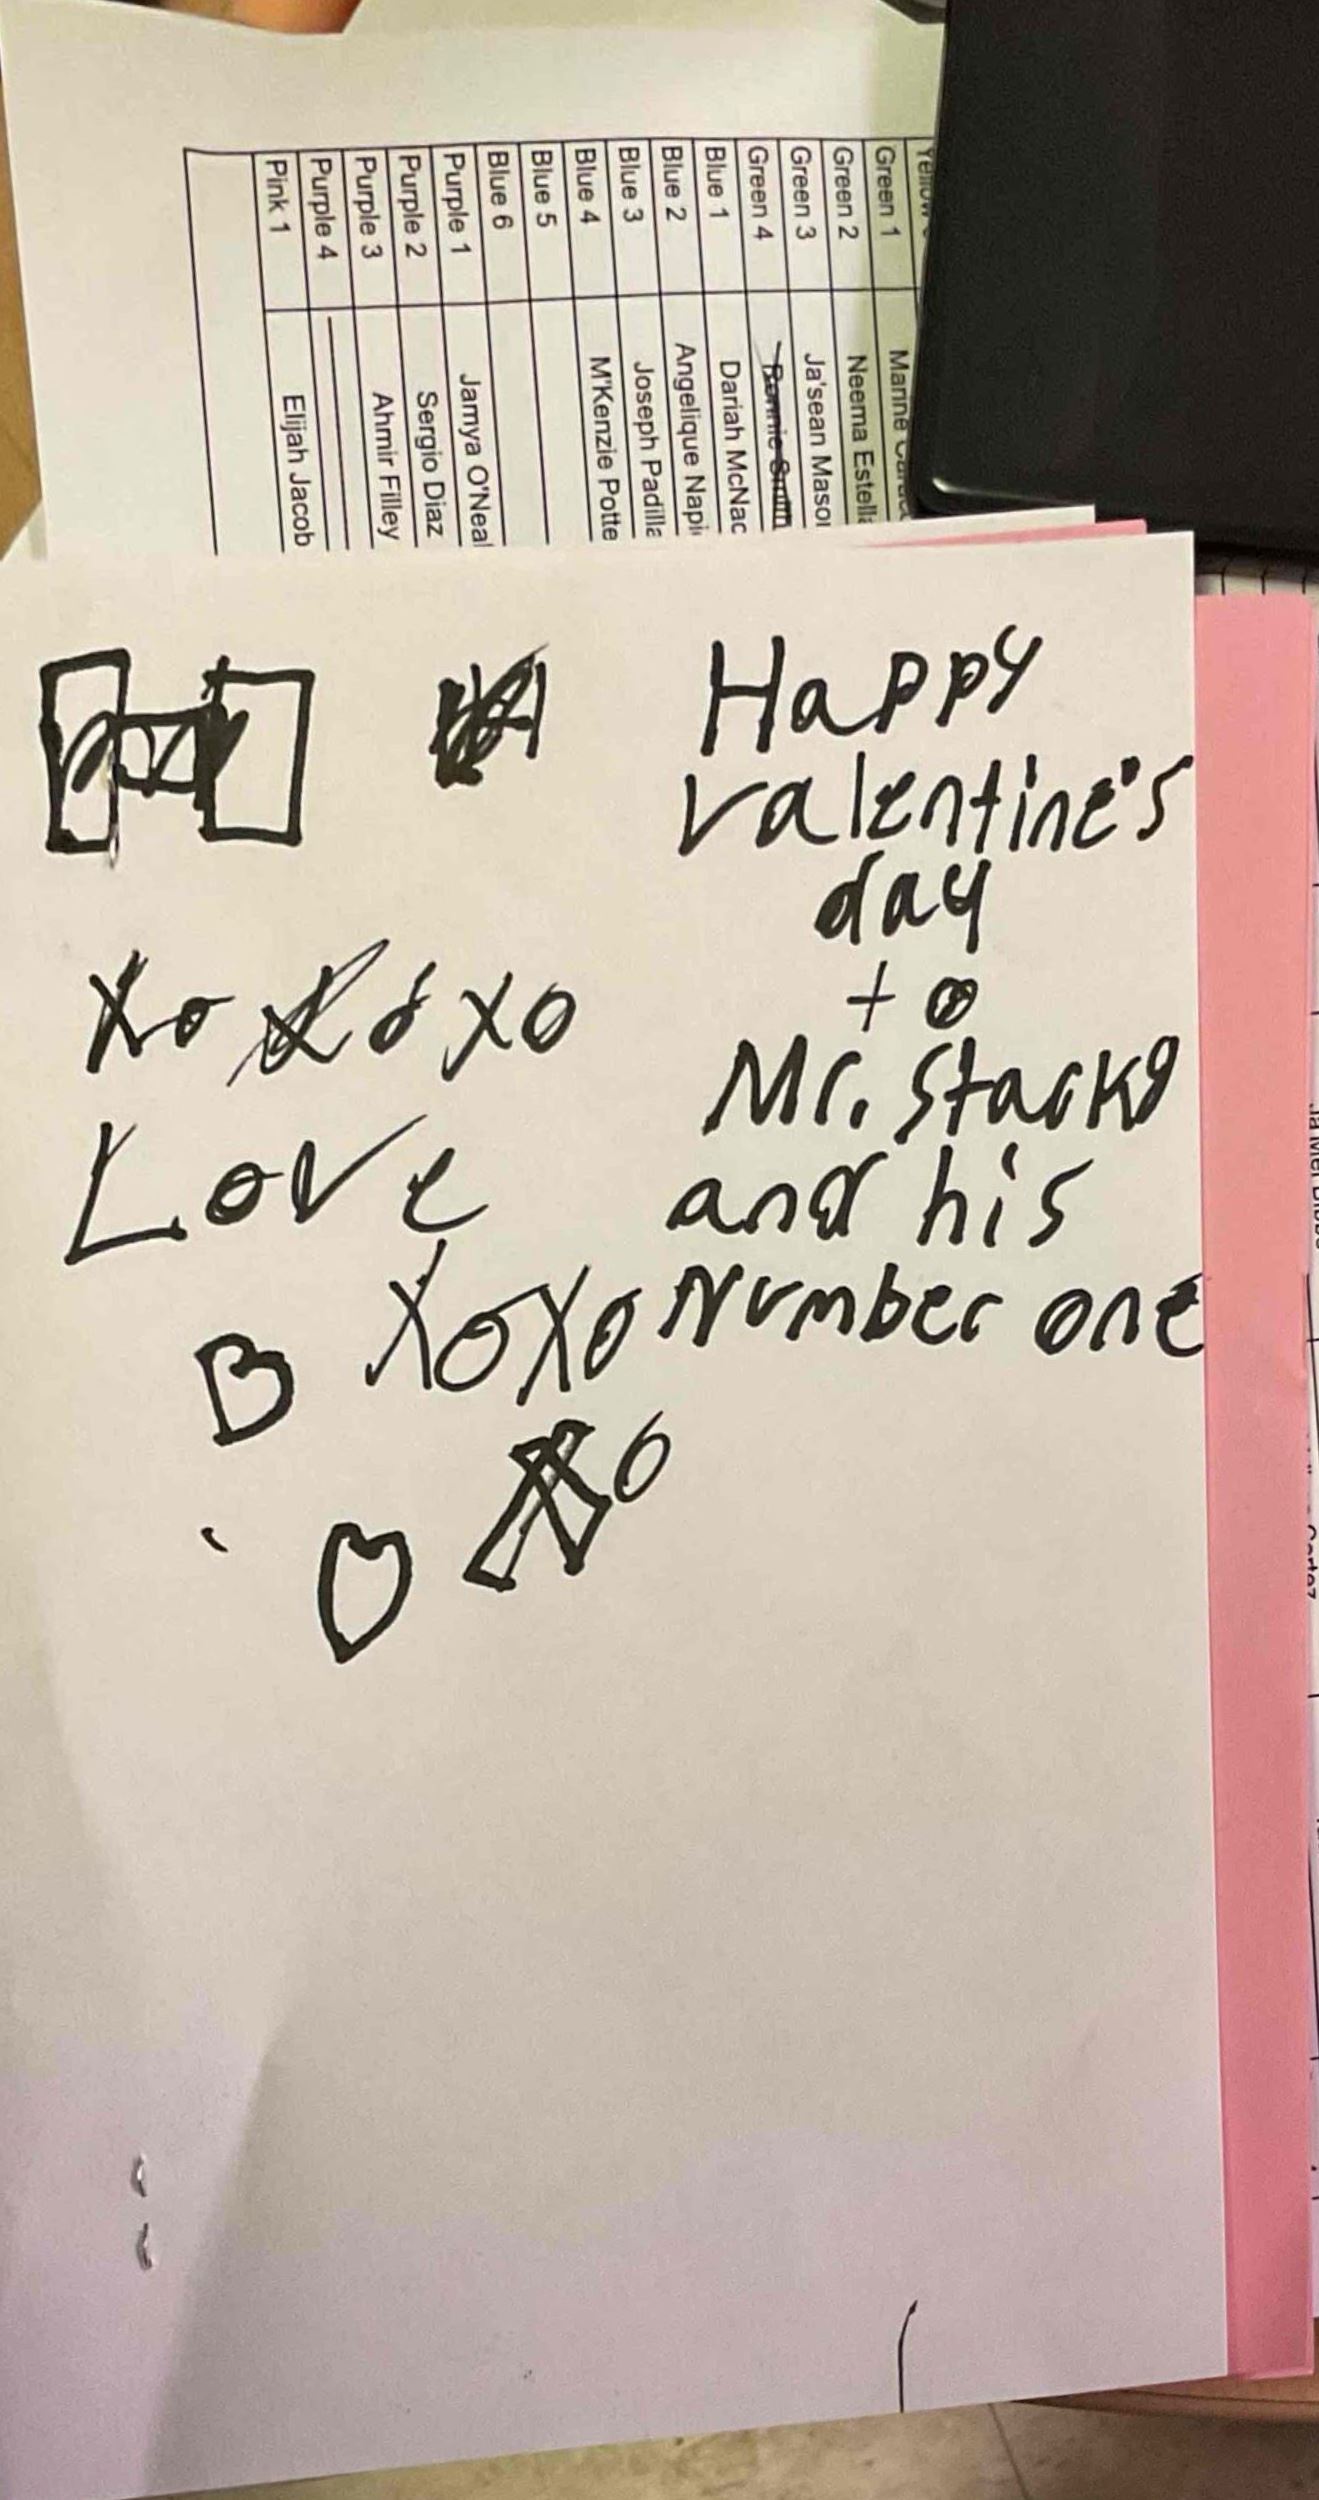 Yellow
Green 1
Green 2 Neema Estella
Green 3 Ja'sean Mason
Green 4 Bonnie Smith
Blue 1 Dariah McNac
Blue 2 Angelique Napi
Blue 3 Joseph Padilla
Blue 4 M'Kenzie Potte
Blue 5
Blue 6
Purple 1 Jamya O'Neal
Purple 2 Sergio Diaz
Purple 3 Ahmir Filley
Purple 4
Pink 1 Elijah Jacob
Happy
valentine's
day
to
Mr. Stacks
and his
Number one
xo xo xo
Love
XoXo
Xo